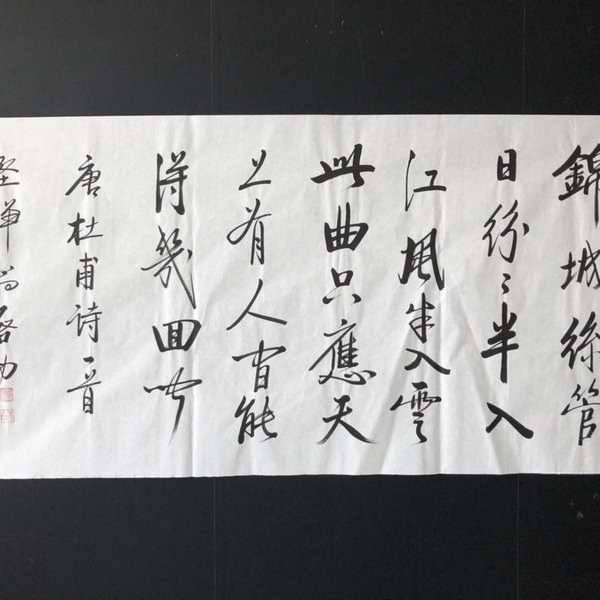 錦城絲管
日紛〻半入
江風半入雲
此曲只應天
上有人間能
得幾回聞
唐杜甫詩一首
啓功